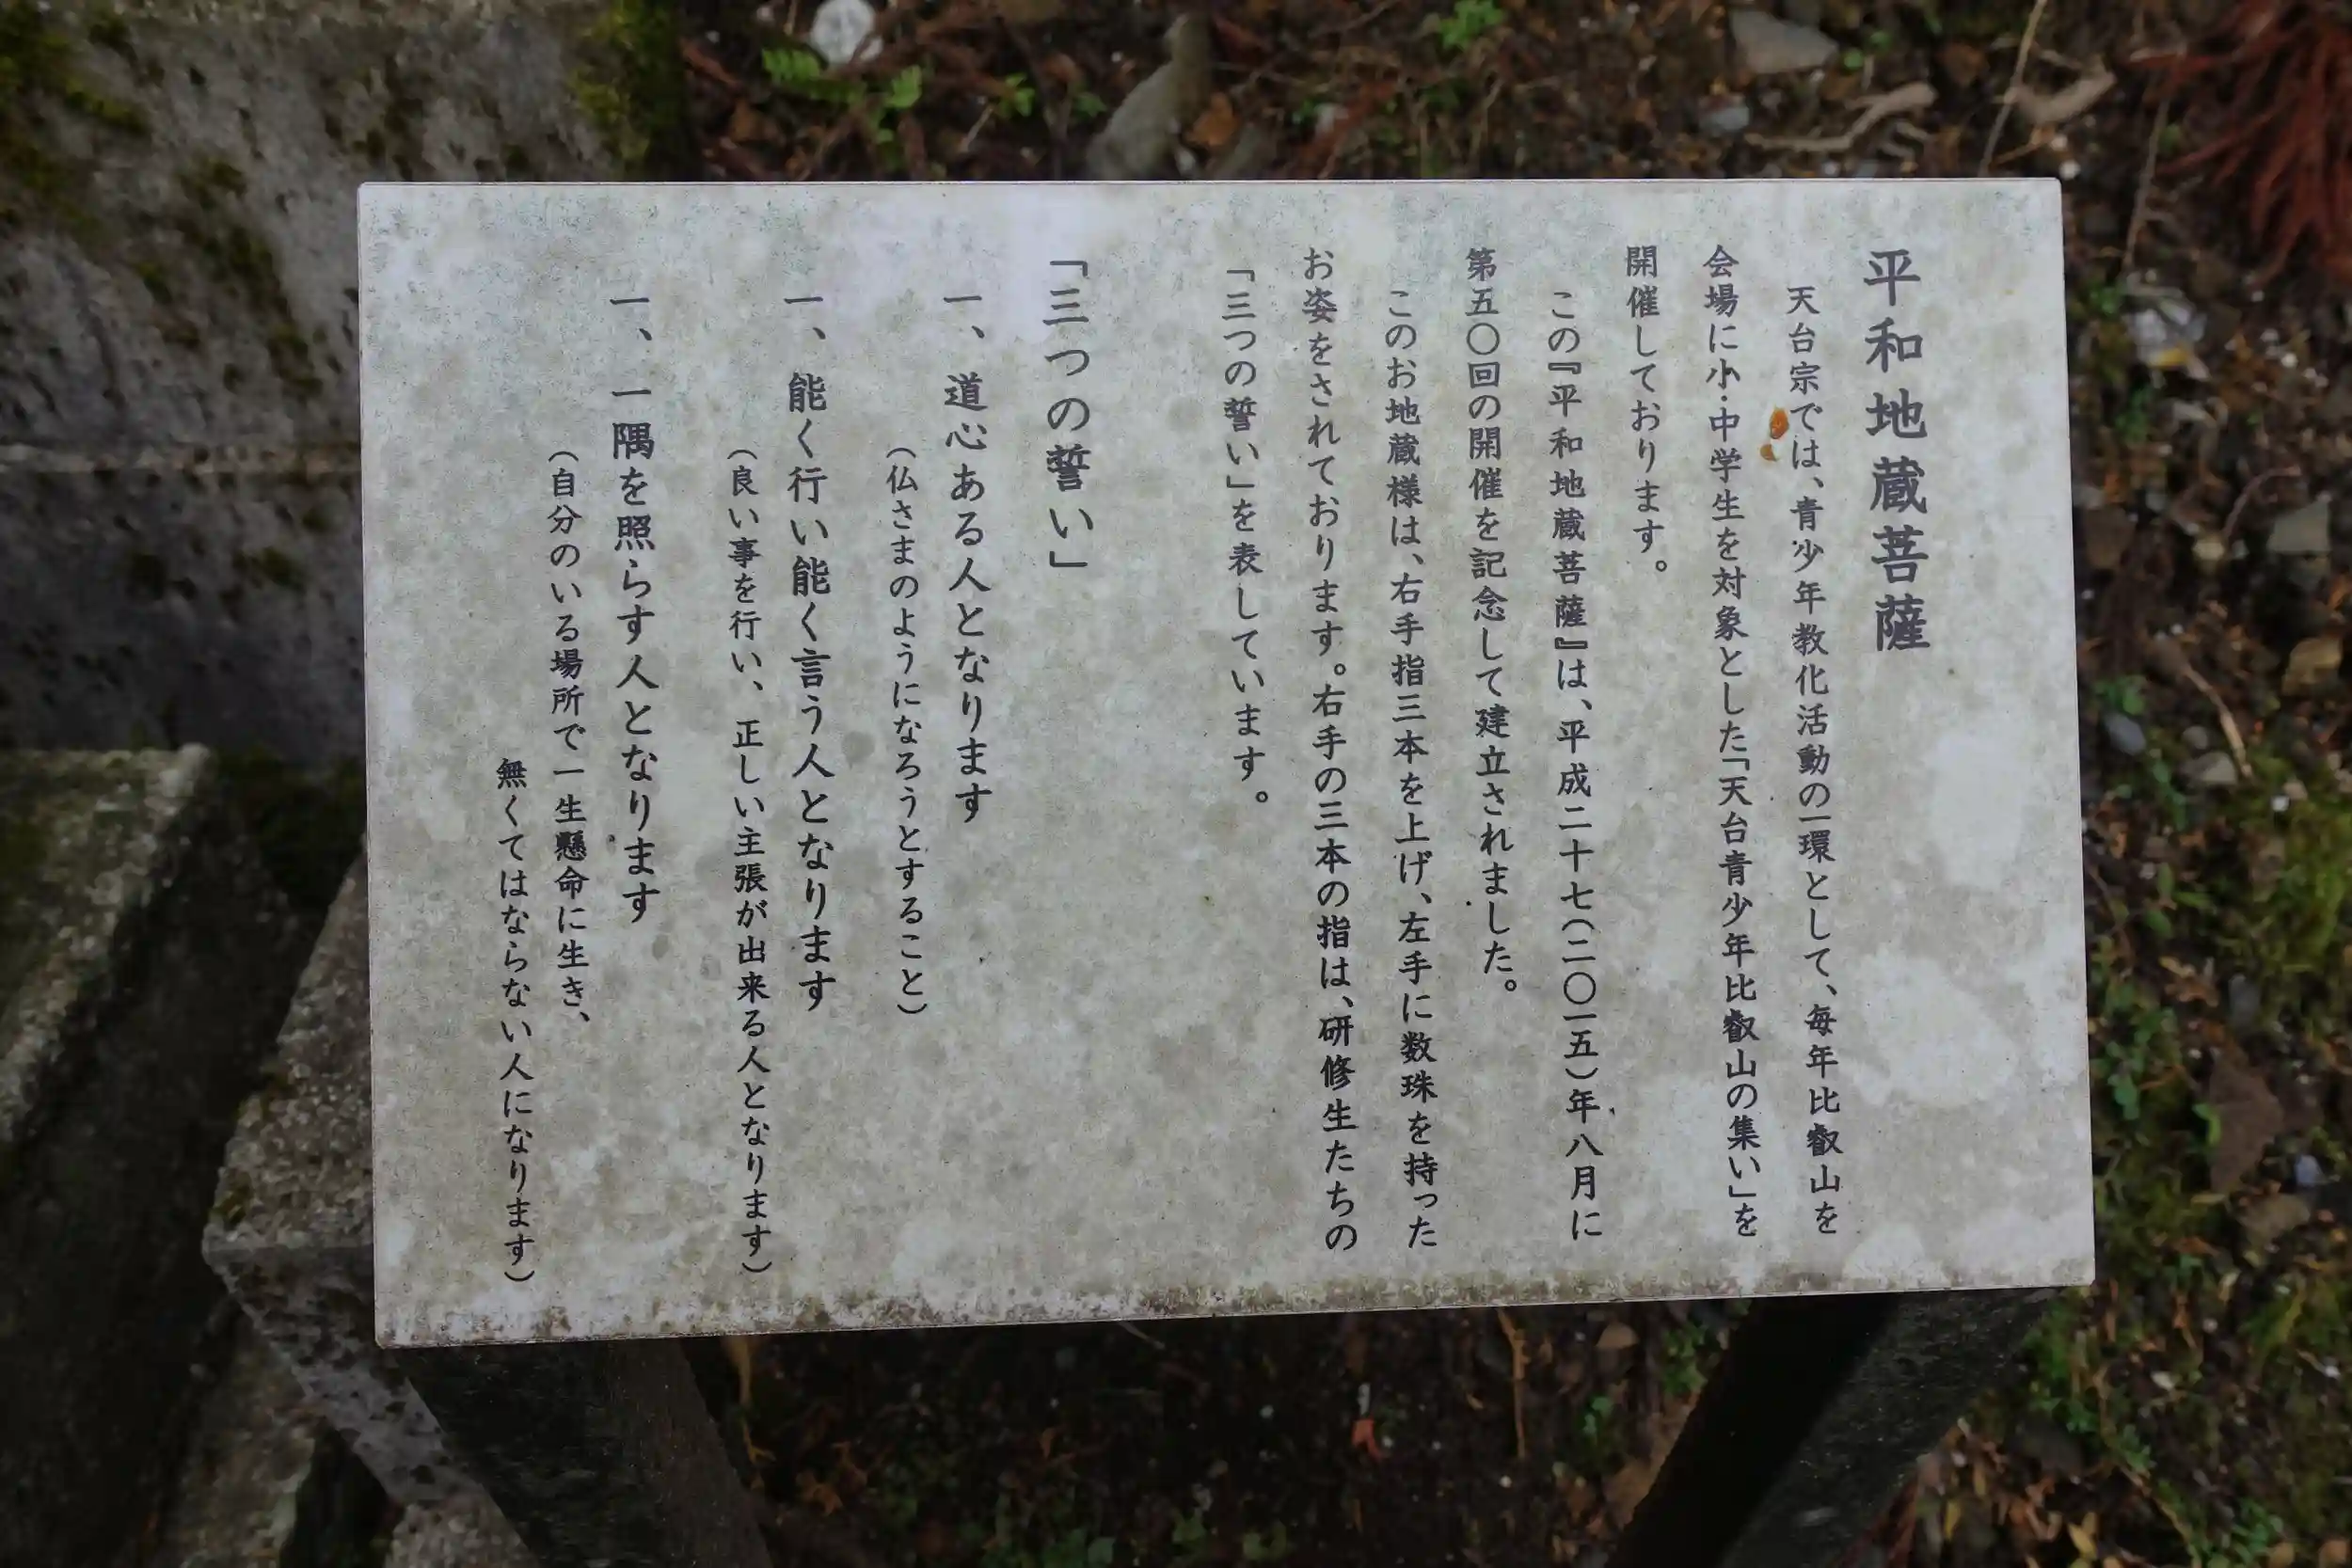 平和地蔵菩薩
天台宗では、青少年教化活動の一環として、毎年比叡山を
会場に小・中学生を対象とした「天台青少年比叡山の集い」を
開催しております。
この『平和地蔵菩薩』は、平成二十七(二〇一五)年八月に
第五〇回の開催を記念して建立されました。
このお地蔵様は、右手指三本を上げ、左手に数珠を持った
お姿をされております。右手の三本の指は、研修生たちの
「三つの誓い」を表しています。
「三つの誓い」
一、道心ある人となります
(仏さまのようになろうとすること)
一、能く行い能く言う人となります
(良い事を行い、正しい主張が出来る人となります)
一、一隅を照らす人となります
(自分のいる場所で一生懸命に生き、
無くてはならない人になります)